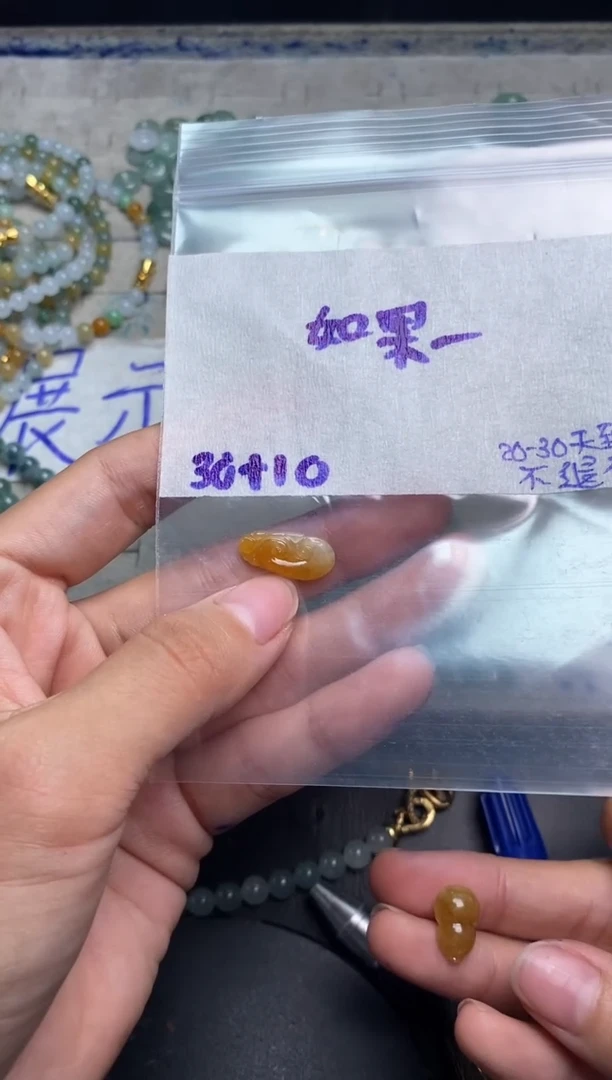 如果一
30+10
20-30天到
不退不
展示